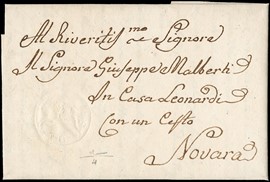 Al Riveritis.mo Signore
Il Signore Giuseppe Malberti
In Casa Leonardi
Con un Cesto
Novara